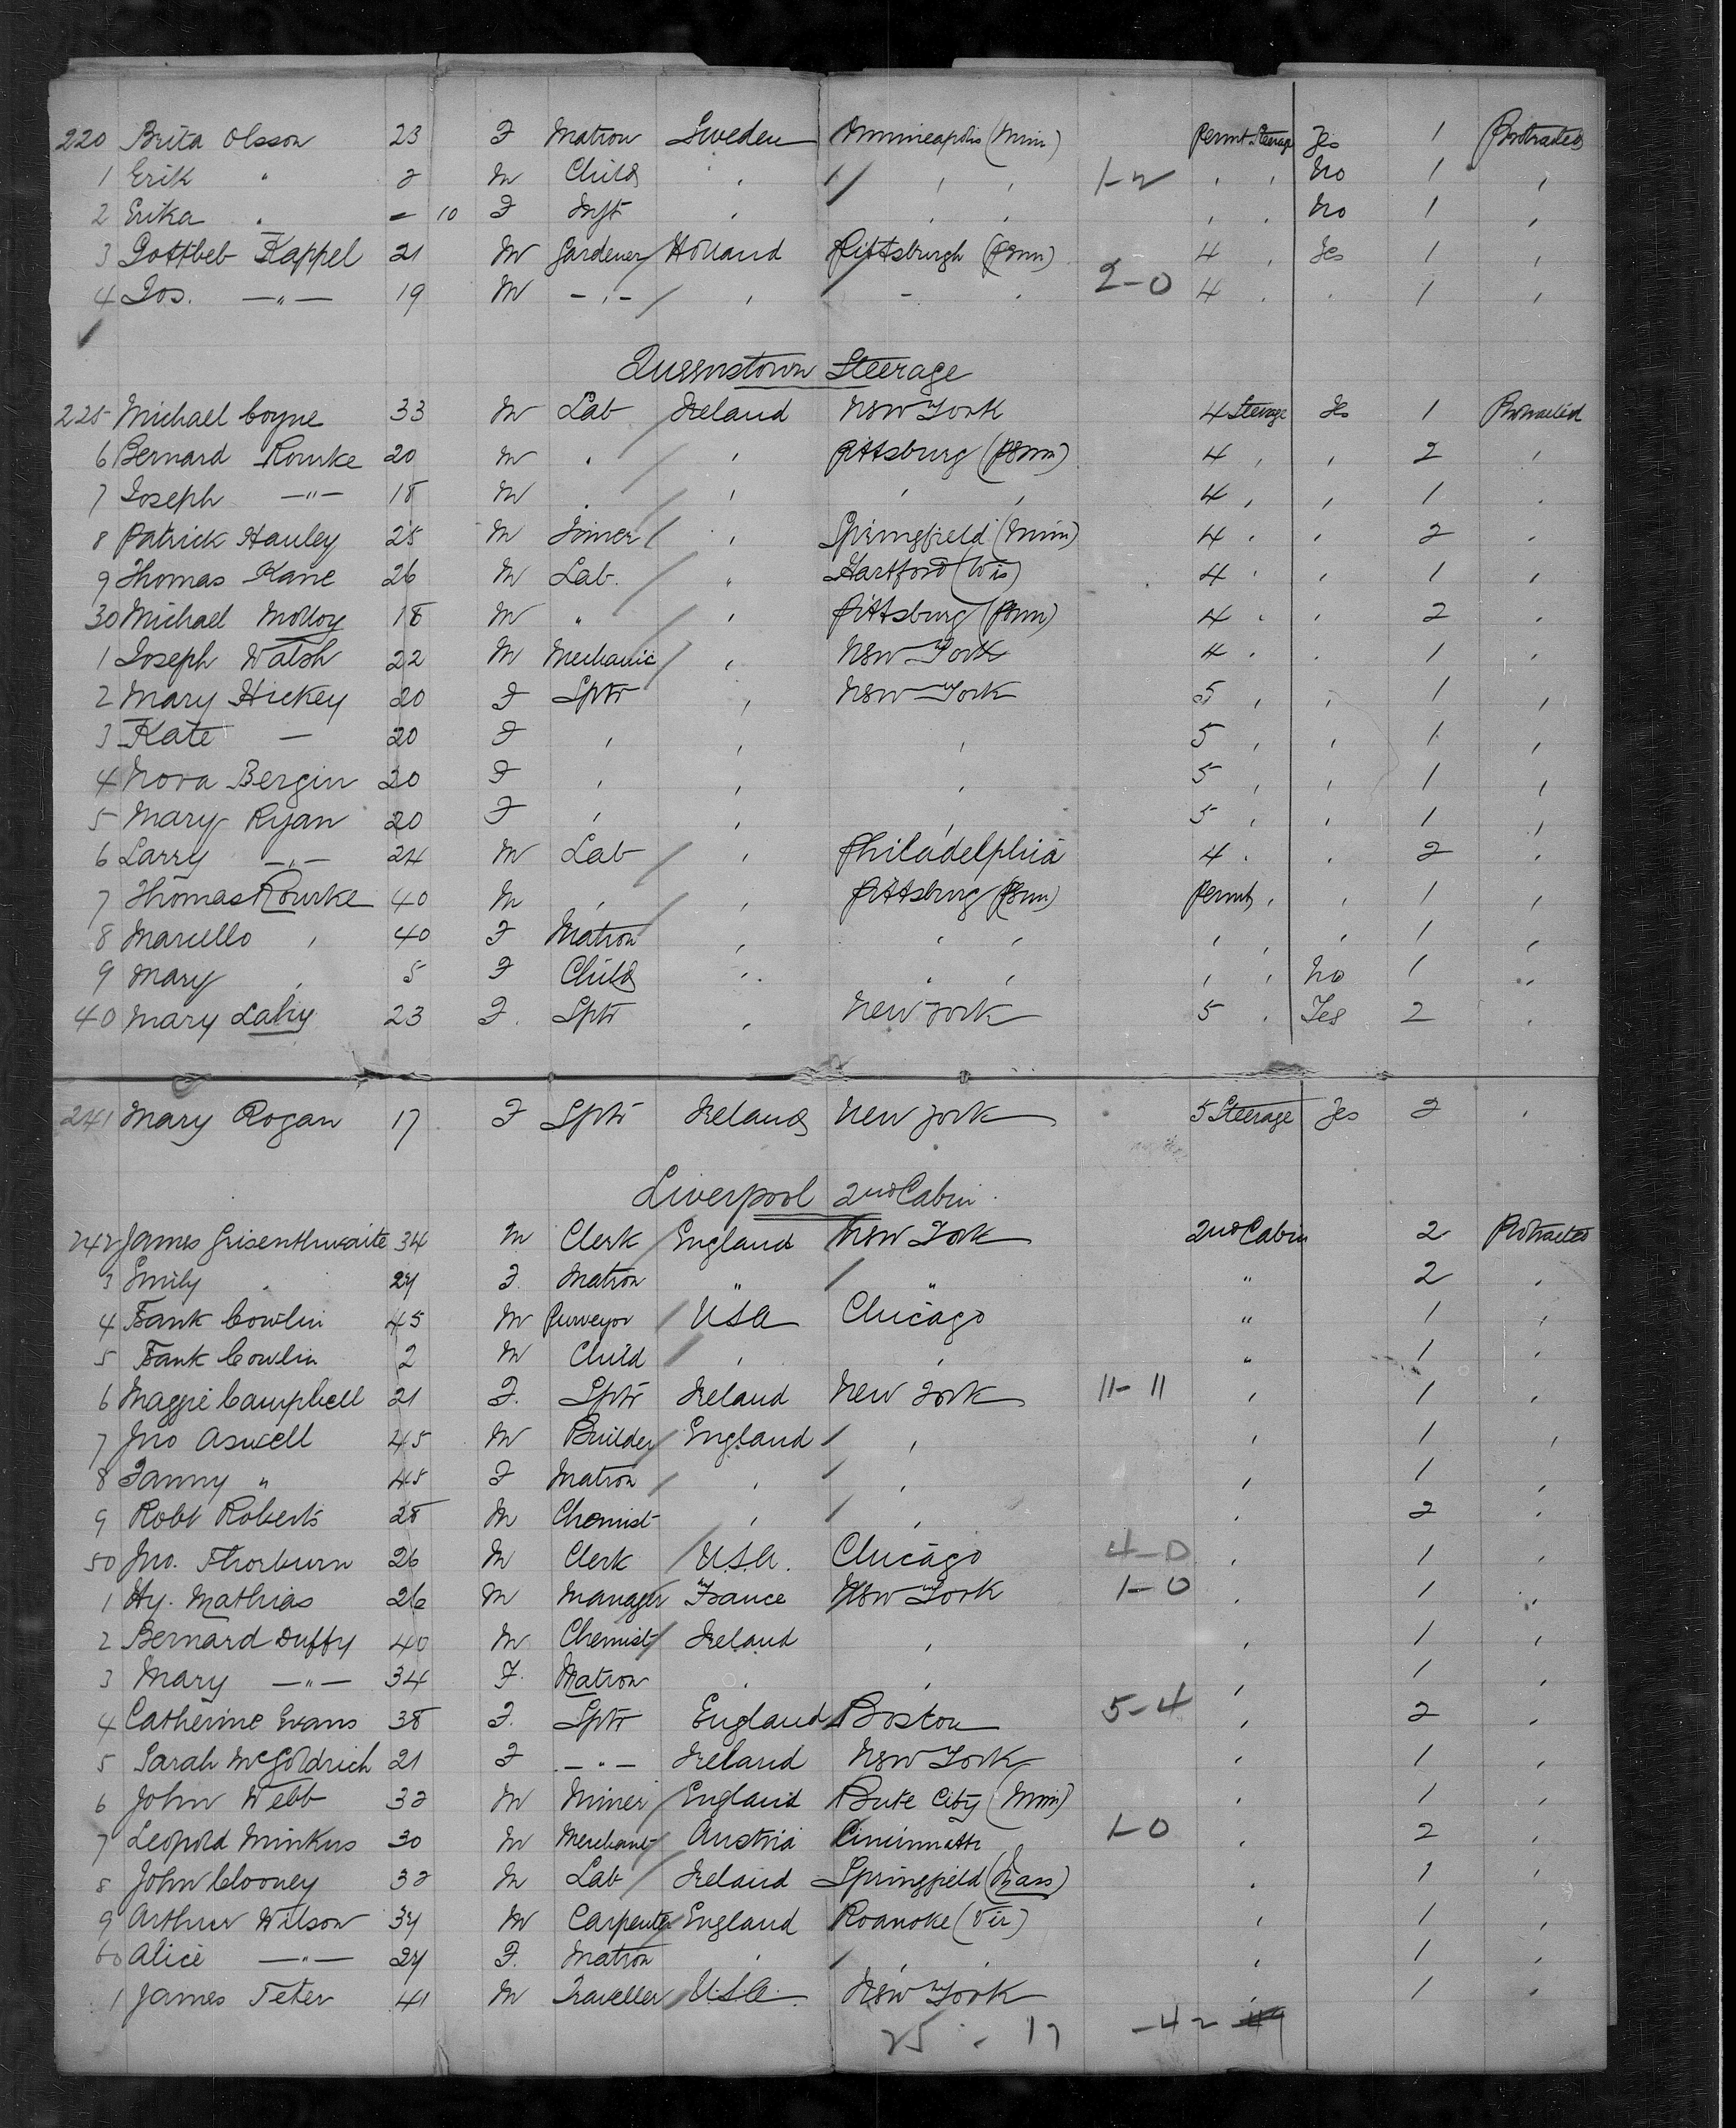 220 Brita Olsson 23 F Matron Sweden Minneapolis (Min) Permt Steerage Yes 1 Protracted
1 Erik " 2 M Child , , , 1-2 , , No 1 ,
2 Erika . - 10 F Inft , , , , , No 1 ,
3 Gottlieb Kappel 21 M Gardener Holland Pittsburgh (Penn) 4 , Yes 1 ,
4 Jos. —"— 19 M -,- , - , 2-0 4 , . 1 ,
Queenstown Steerage
225 Michael Coyne 33 M Lab Ireland New York 4 Steerage Yes 1 Protracted
6 Bernard Rourke 20 M . , Pittsburg (Penn) 4 , , 2 ,
7 Joseph —"— 18 M . , , , 4 , , 1 .
8 Patrick Hanley 25 M Joiner , Springfield (Min) 4 . . 2 .
9 Thomas Kane 26 M Lab. " Hartford (Wis) 4 . , 1 ,
30 Michael Molloy 18 M " , Pittsburg (Penn) 4 . . 2 .
1 Joseph Walsh 22 M Mechanic , New York 4 . . 1 ,
2 Mary Hickey 20 F Sptr , New York 5 , , 1 ,
3 Kate — 20 F , , , 5 , , 1 ,
4 Nora Bergin 20 F , , , 5 , , 1 ,
5 Mary Ryan 20 F , , , 5 , , 1 ,
6 Larry —.— 24 M Lab , Philadelphia 4 . . 2 .
7 Thomas Rourke 40 M , , Pittsburg (Penn) Permt , , 1 ,
8 Marcello , 40 F Matron , , , , , , 1 ,
9 Mary , 5 F Child .. . , , , No 1 .
40 Mary Lahy 23 F. Sptr , New York 5 . Yes 2 .
241 Mary Rogan 17 F Sptr Ireland New York 5 Steerage Yes 2 ,
Liverpool 2nd Cabin
242 James Grisenthwaite 34 M Clerk England New York 2nd Cabin 2 Protracted
3 Emily . 27 F. Matron " " " 2 ,
4 Frank Cowlin 45 M Purveyor USA Chicago " 1 ,
5 Frank Cowlin 2 M Child , , " 1 .
6 Maggie Campbell 21 F. Sptr Ireland New York 11-11 , 1 ,
7 Jno Aswell 45 M Builder England , , 1 ,
8 Fanny " 45 F Matron , , , 1 ,
9 Robt Roberts 28 M Chemist , , . 2 .
50 Jno. Thorburn 26 M Clerk U.S.A. Chicago 4-0 , 1 ,
1 Hy. Mathias 26 M Manager France New York 1-0 , 1 ,
2 Bernard Duffy 40 M Chemist Ireland , , 1 ,
3 Mary —"— 34 F. Matron . , , 1 ,
4 Catherine Evans 38 F. Sptr England Boston 5-4 , 2 ,
5 Sarah McGoldrich 21 F —"— Ireland New York , 1 ,
6 John Webb 32 M Miner England Bute City (Min) , 1 ,
7 Leopold Minkus 30 M Merchant Austria Cincinnatti 1-0 , 2 ,
8 John Clooney 32 M Lab Ireland Springfield (Mass) . 1 ,
9 Arthur Wilson 37 M Carpenter England Roanoke (Vir) , 1 ,
60 Alice —"— 27 F. Matron , , , , 1 ,
1 James Teter 41 M Traveller U.S.A. New York , 1 ,
25 - 17 -42